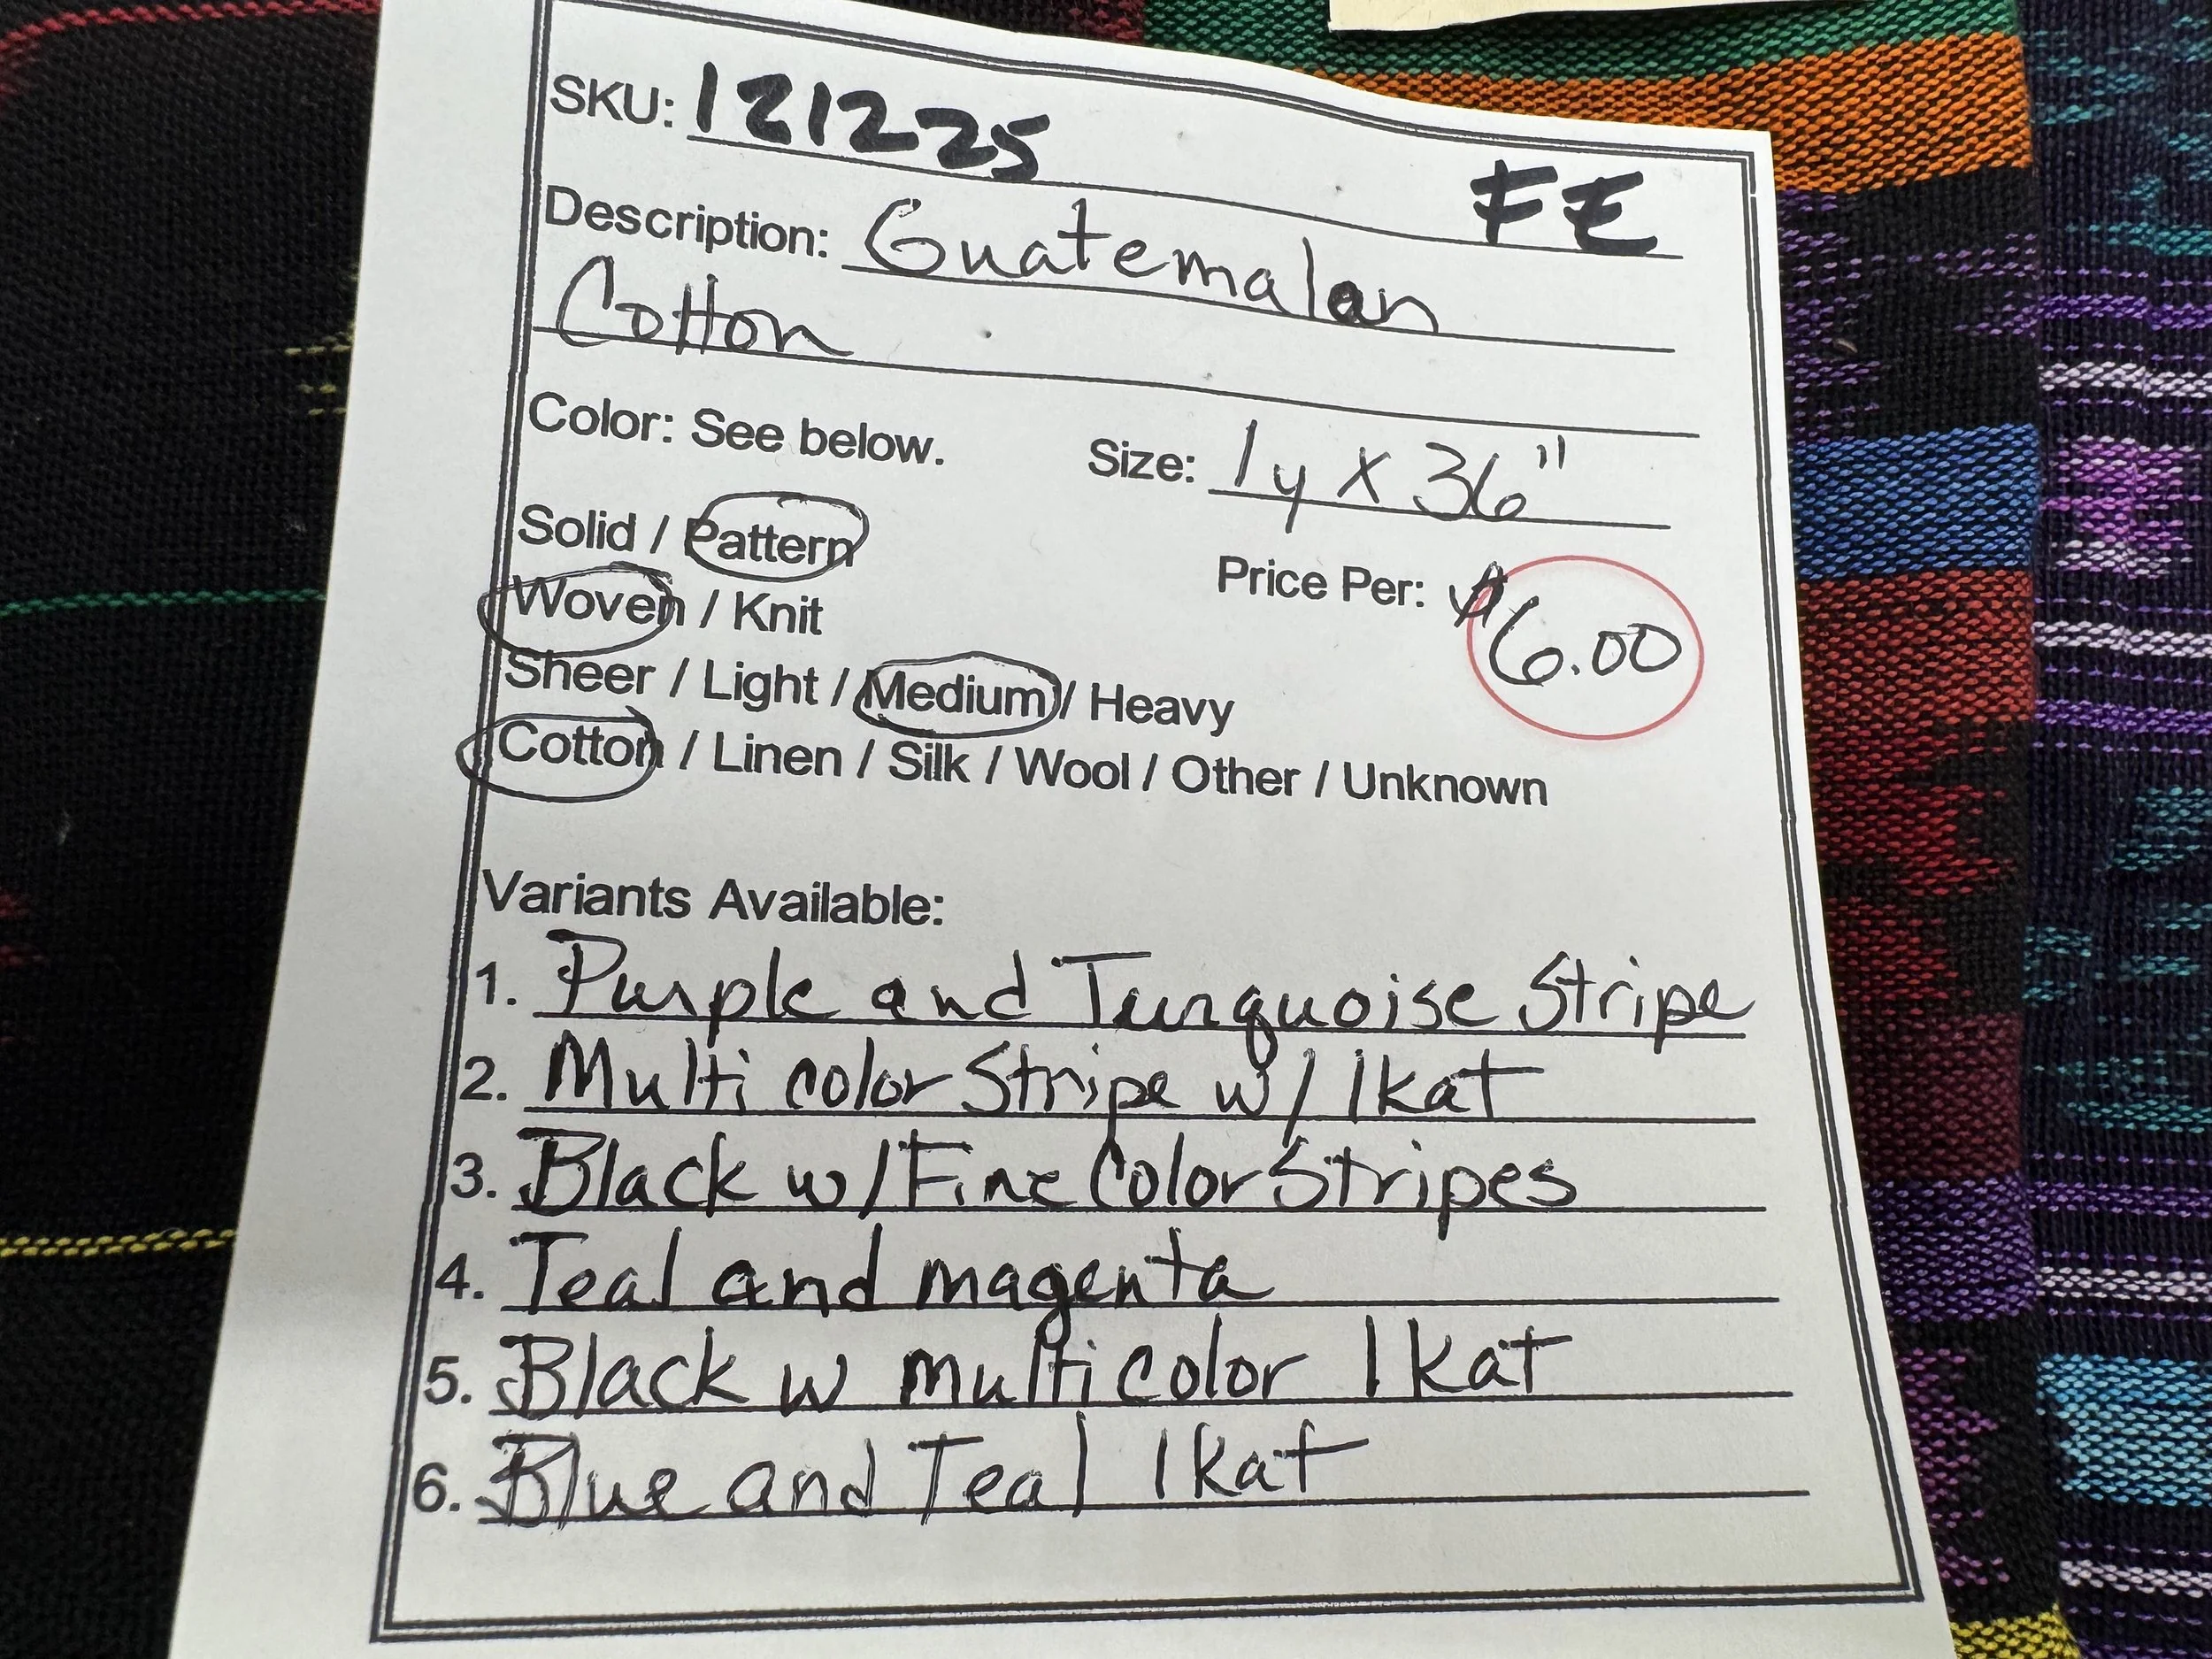 SKU: 121225
FE
Description: Guatemalan
Cotton
Color: See below.
Size: 1y X 36"
Solid / Pattern
Price Per: $6.00
Woven / Knit
Sheer / Light / Medium / Heavy
Cotton / Linen / Silk / Wool / Other / Unknown
Variants Available:
1. Purple and Turquoise Stripe
2. Multi color Stripe w/ Ikat
3. Black w/ Fine Color Stripes
4. Teal and magenta
5. Black w multicolor Ikat
6. Blue and Teal Ikat